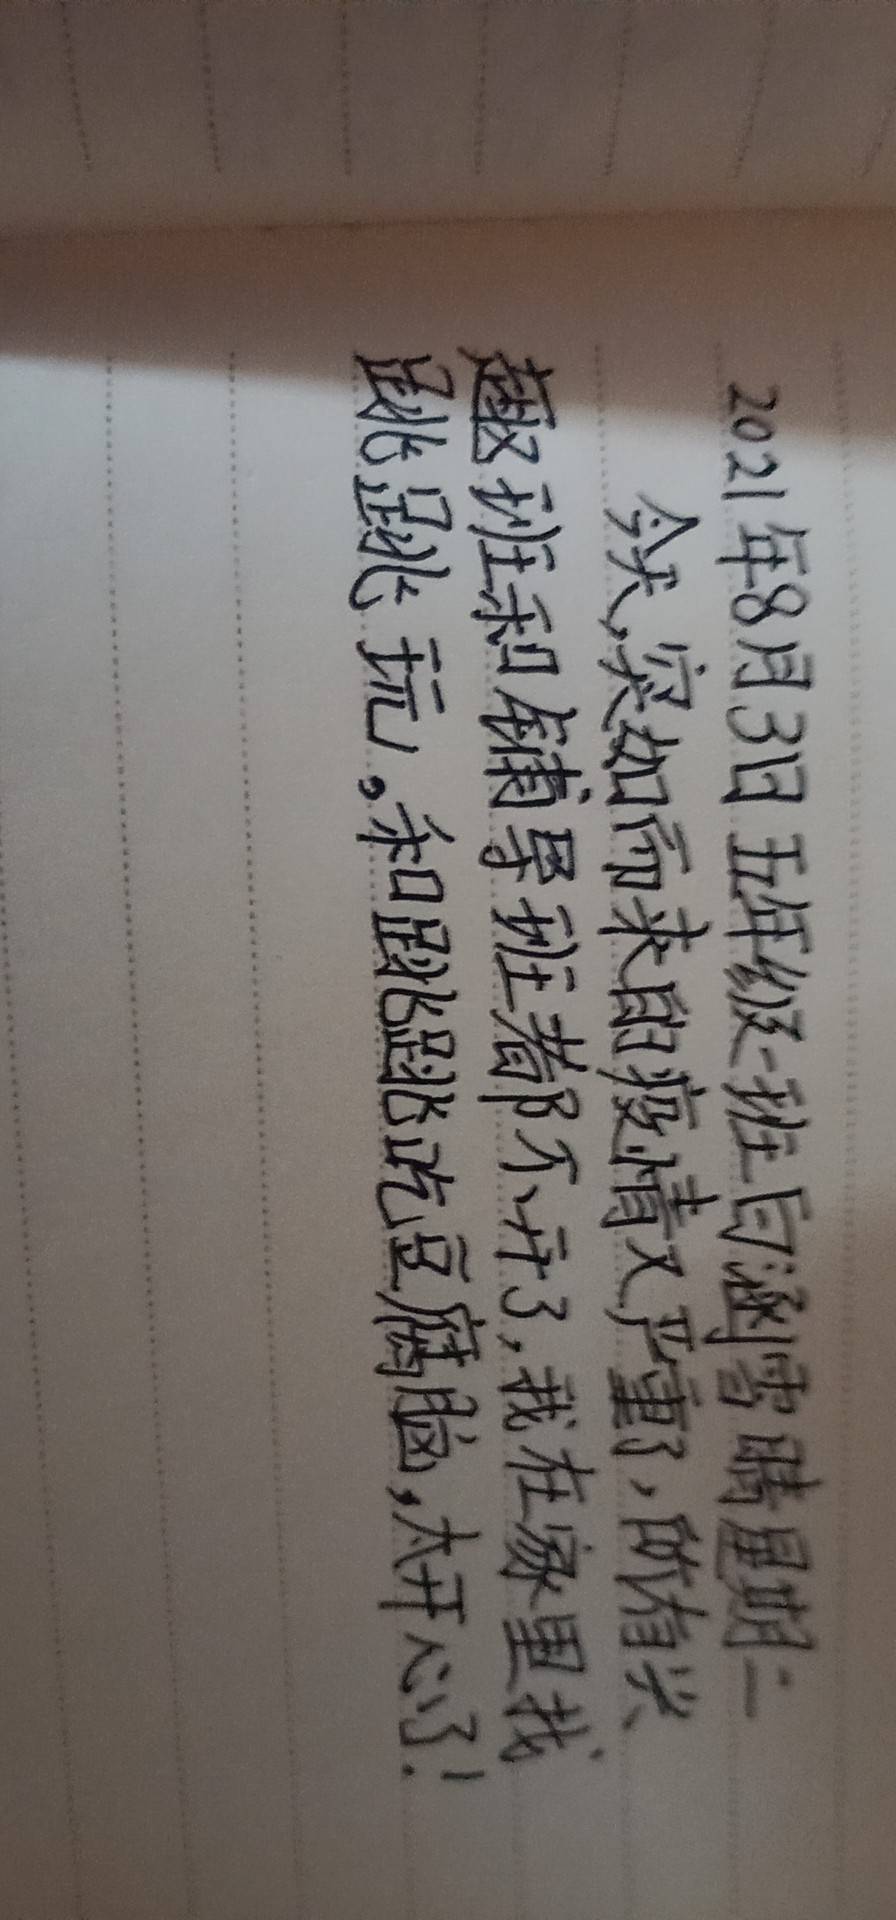 2021年8月3日 五年级一班 白涵雪 晴 星期二
今天,突如而来的疫情又严重了,所有兴
趣班和辅导班都不开了,我在家里找
跳跳玩。和跳跳吃豆腐脑,太开心了!